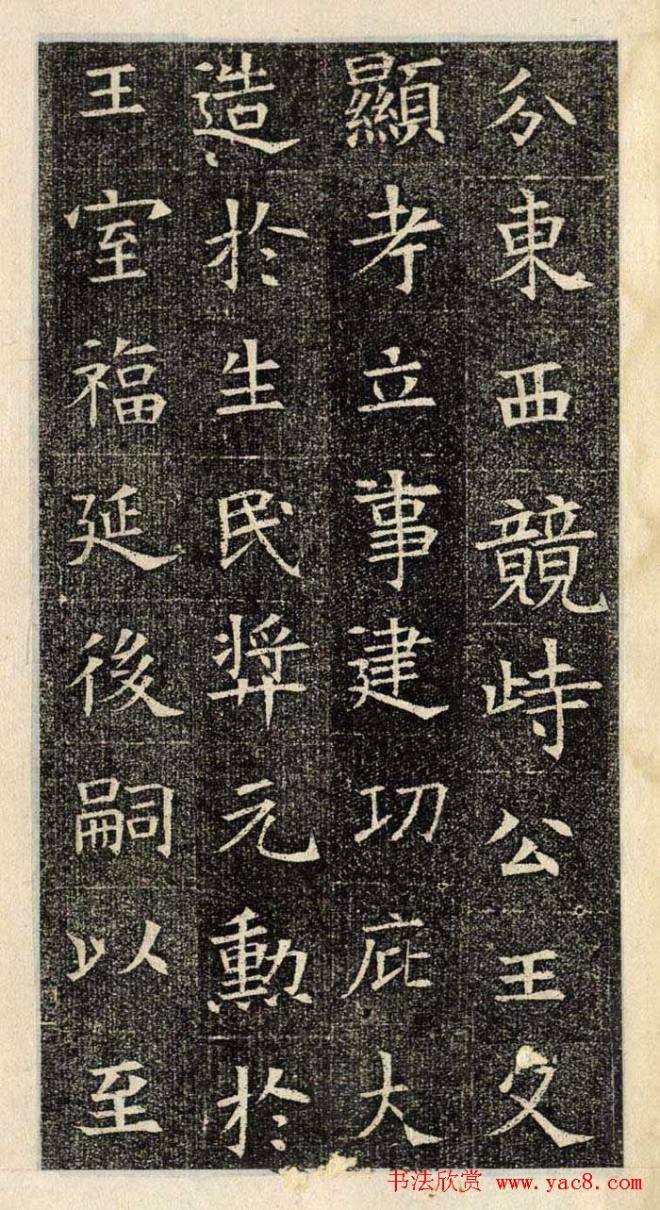 分東西競峙公王父
顯考立事建功庇大
造於生民奨元勳於
王室福延後嗣以至
书法欣赏 www.yac8.com